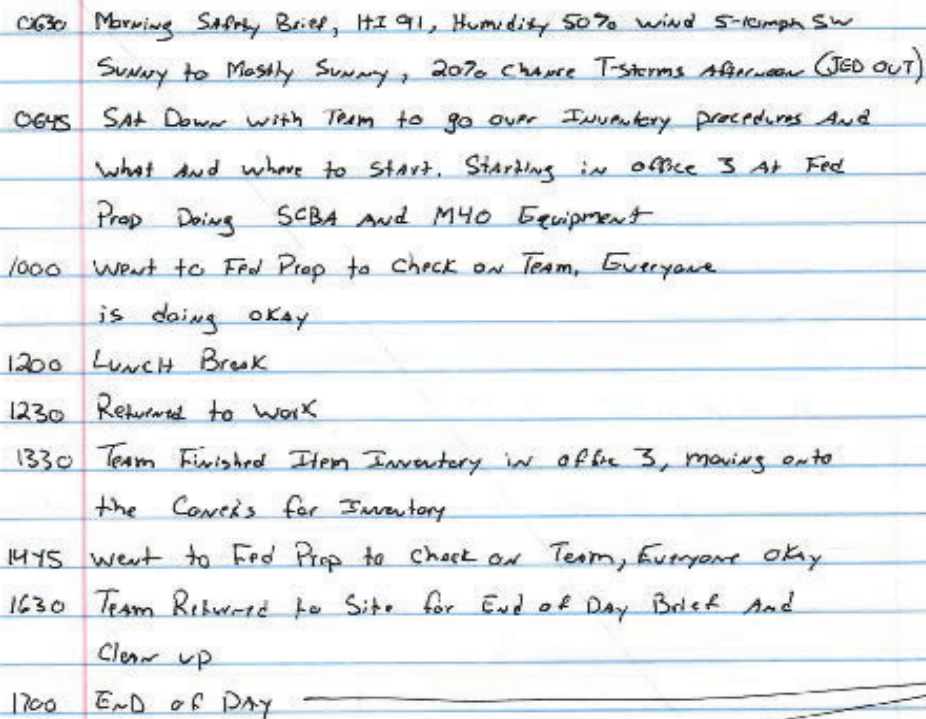 0630 Morning Safety Brief, HI 91, Humidity 50% wind 5-10mph SW
Sunny to Mostly Sunny, 20% chance T-storms Afternoon (JED OUT)
0645 Sat Down with Team to go over Inventory procedures And
what And where to start. Starting in office 3 At Fed
Prop Doing SCBA And M40 Equipment
1000 went to Fed Prop to check on Team, Everyone
is doing okay
1200 Lunch Break
1230 Returned to work
1330 Team Finished Item Inventory in office 3, moving onto
the Conex's for Inventory
1445 went to Fed Prop to check on Team, Everyone okay
1630 Team Returned to Site for End of Day Brief And
Clean up
1700 End of Day